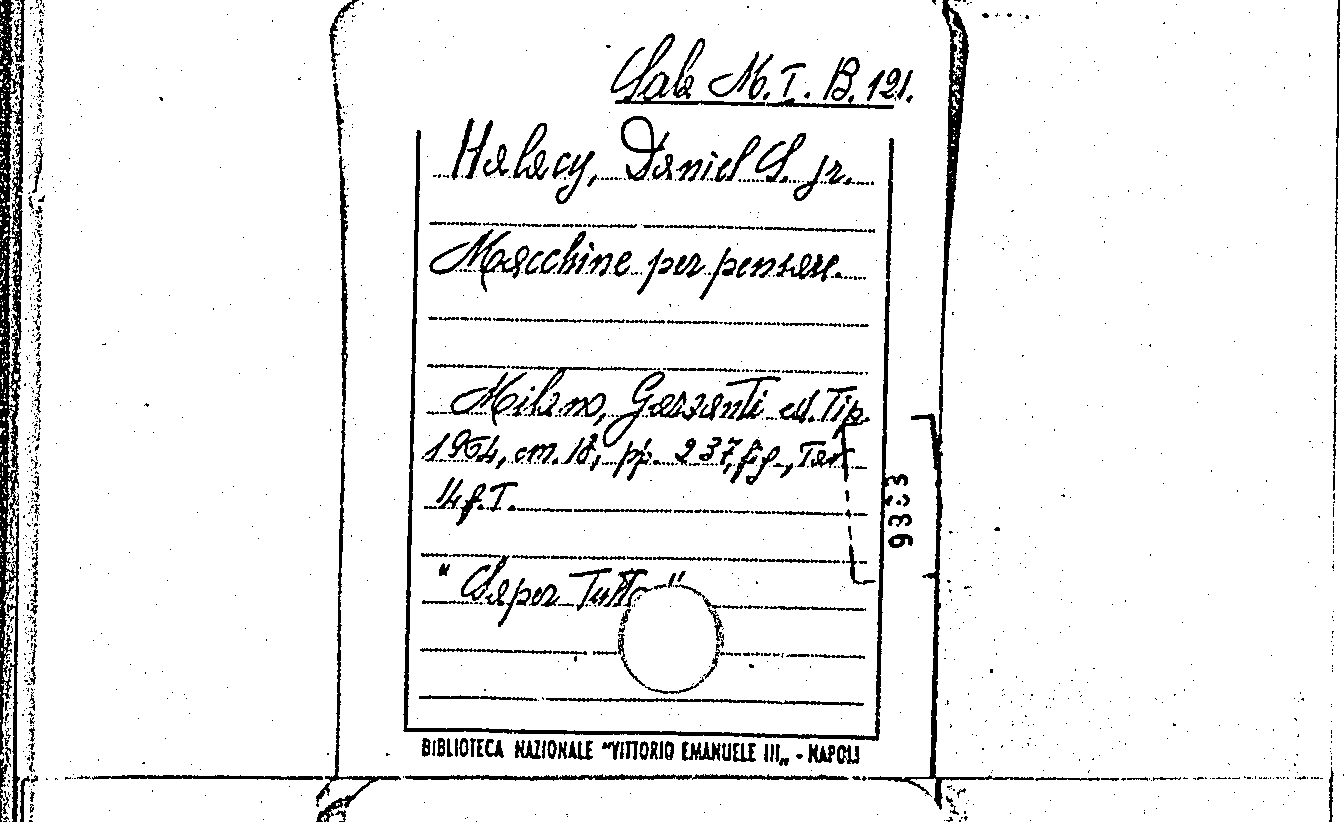 Sala M. T. B. 121.
Halacy, Daniel S. jr.
Macchine per pensare.
Milano, Garzanti ed. Tip.
1964, cm. 18, pp. 237, fig., Tav
4 f. T.
"Saper Tutto"
BIBLIOTECA NAZIONALE "VITTORIO EMANUELE III„ - NAPOLI